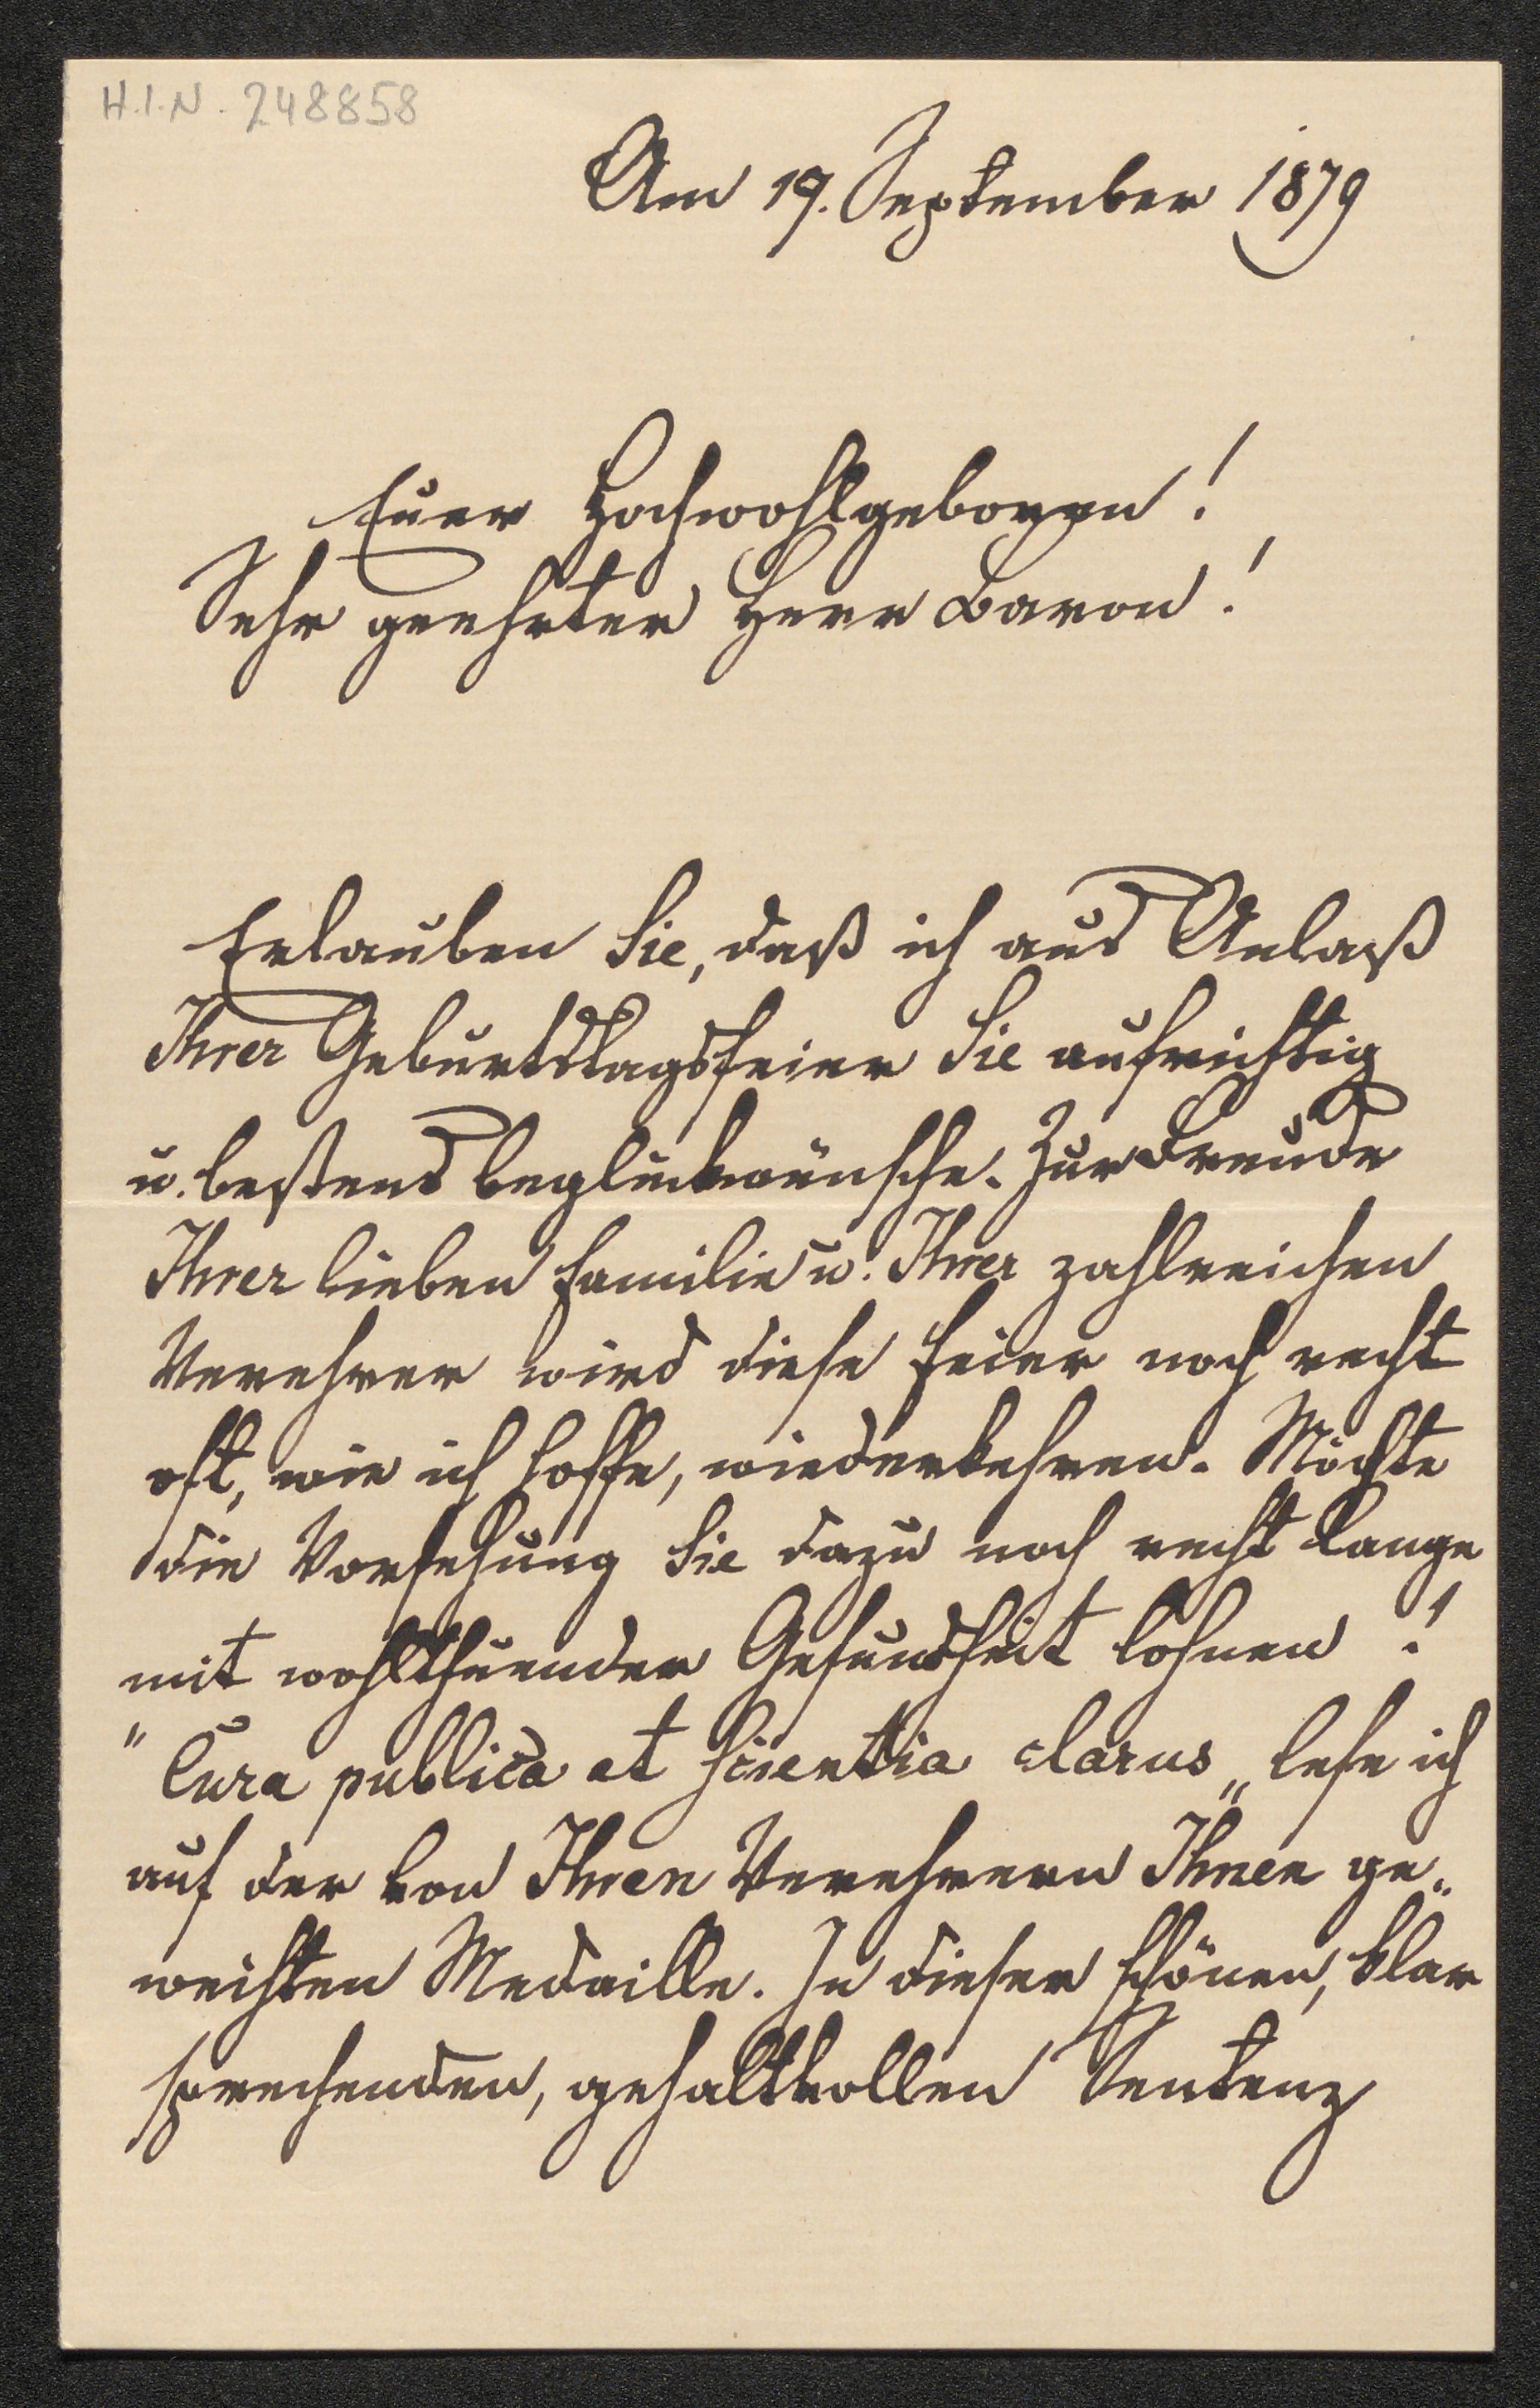 H.I.N. 248858
Am 19. September 1879
Euer Hochwohlgeboren!
Sehr geehrter Herr Baron!
Erlauben Sie, daß ich aus Anlaß
Ihrer Geburtstagsfeier Sie aufrichtig
u. bestens beglückwünsche. Zur Freude
Ihrer lieben Familie u. Ihrer zahlreichen
Verehrer wird diese Feier noch recht
oft, wie ich hoffe, wiederkehren. Möchte
die Vorsehung Sie dazu noch recht lange
mit wohlthuender Gesundheit lohnen!
"Cura publica et scientia clarus„ lese ich
auf der von Ihren Verehrern Ihnen ge„
weihten Medaille. In dieser schönen, klar
sprechenden, gehaltvollen Sentenz